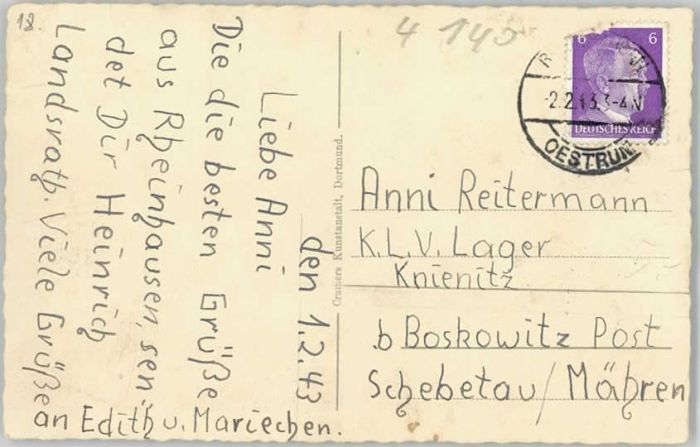 18.
4 145
den 1.2.43
Liebe Anni
Die die besten Grüße
aus Rheinhausen, sen
det Dir Heinrich
Landsrath. Viele Grüße
an Edith u. Mariechen.
Cramers Kunstanstalt, Dortmund.
6 6
DEUTSCHES REICH
-2.2.43.3-4N
OESTRUM
Anni Reitermann
K.L.V. Lager
Knienitz
b Boskowitz Post
Schebetau/Mähren